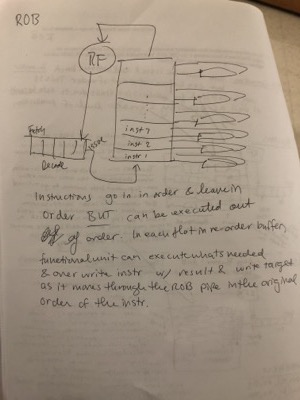 ROB
RF
Fetch
Issue
Decode
inst 3
inst 2
instr 1
Instructions go in in order & leave in
order BUT can be executed out
of order. In each slot in re-order buffer,
functional unit can execute what's needed
& over write instr w/ result & write target
as it moves through the ROB pipe in the original
order of the instr.